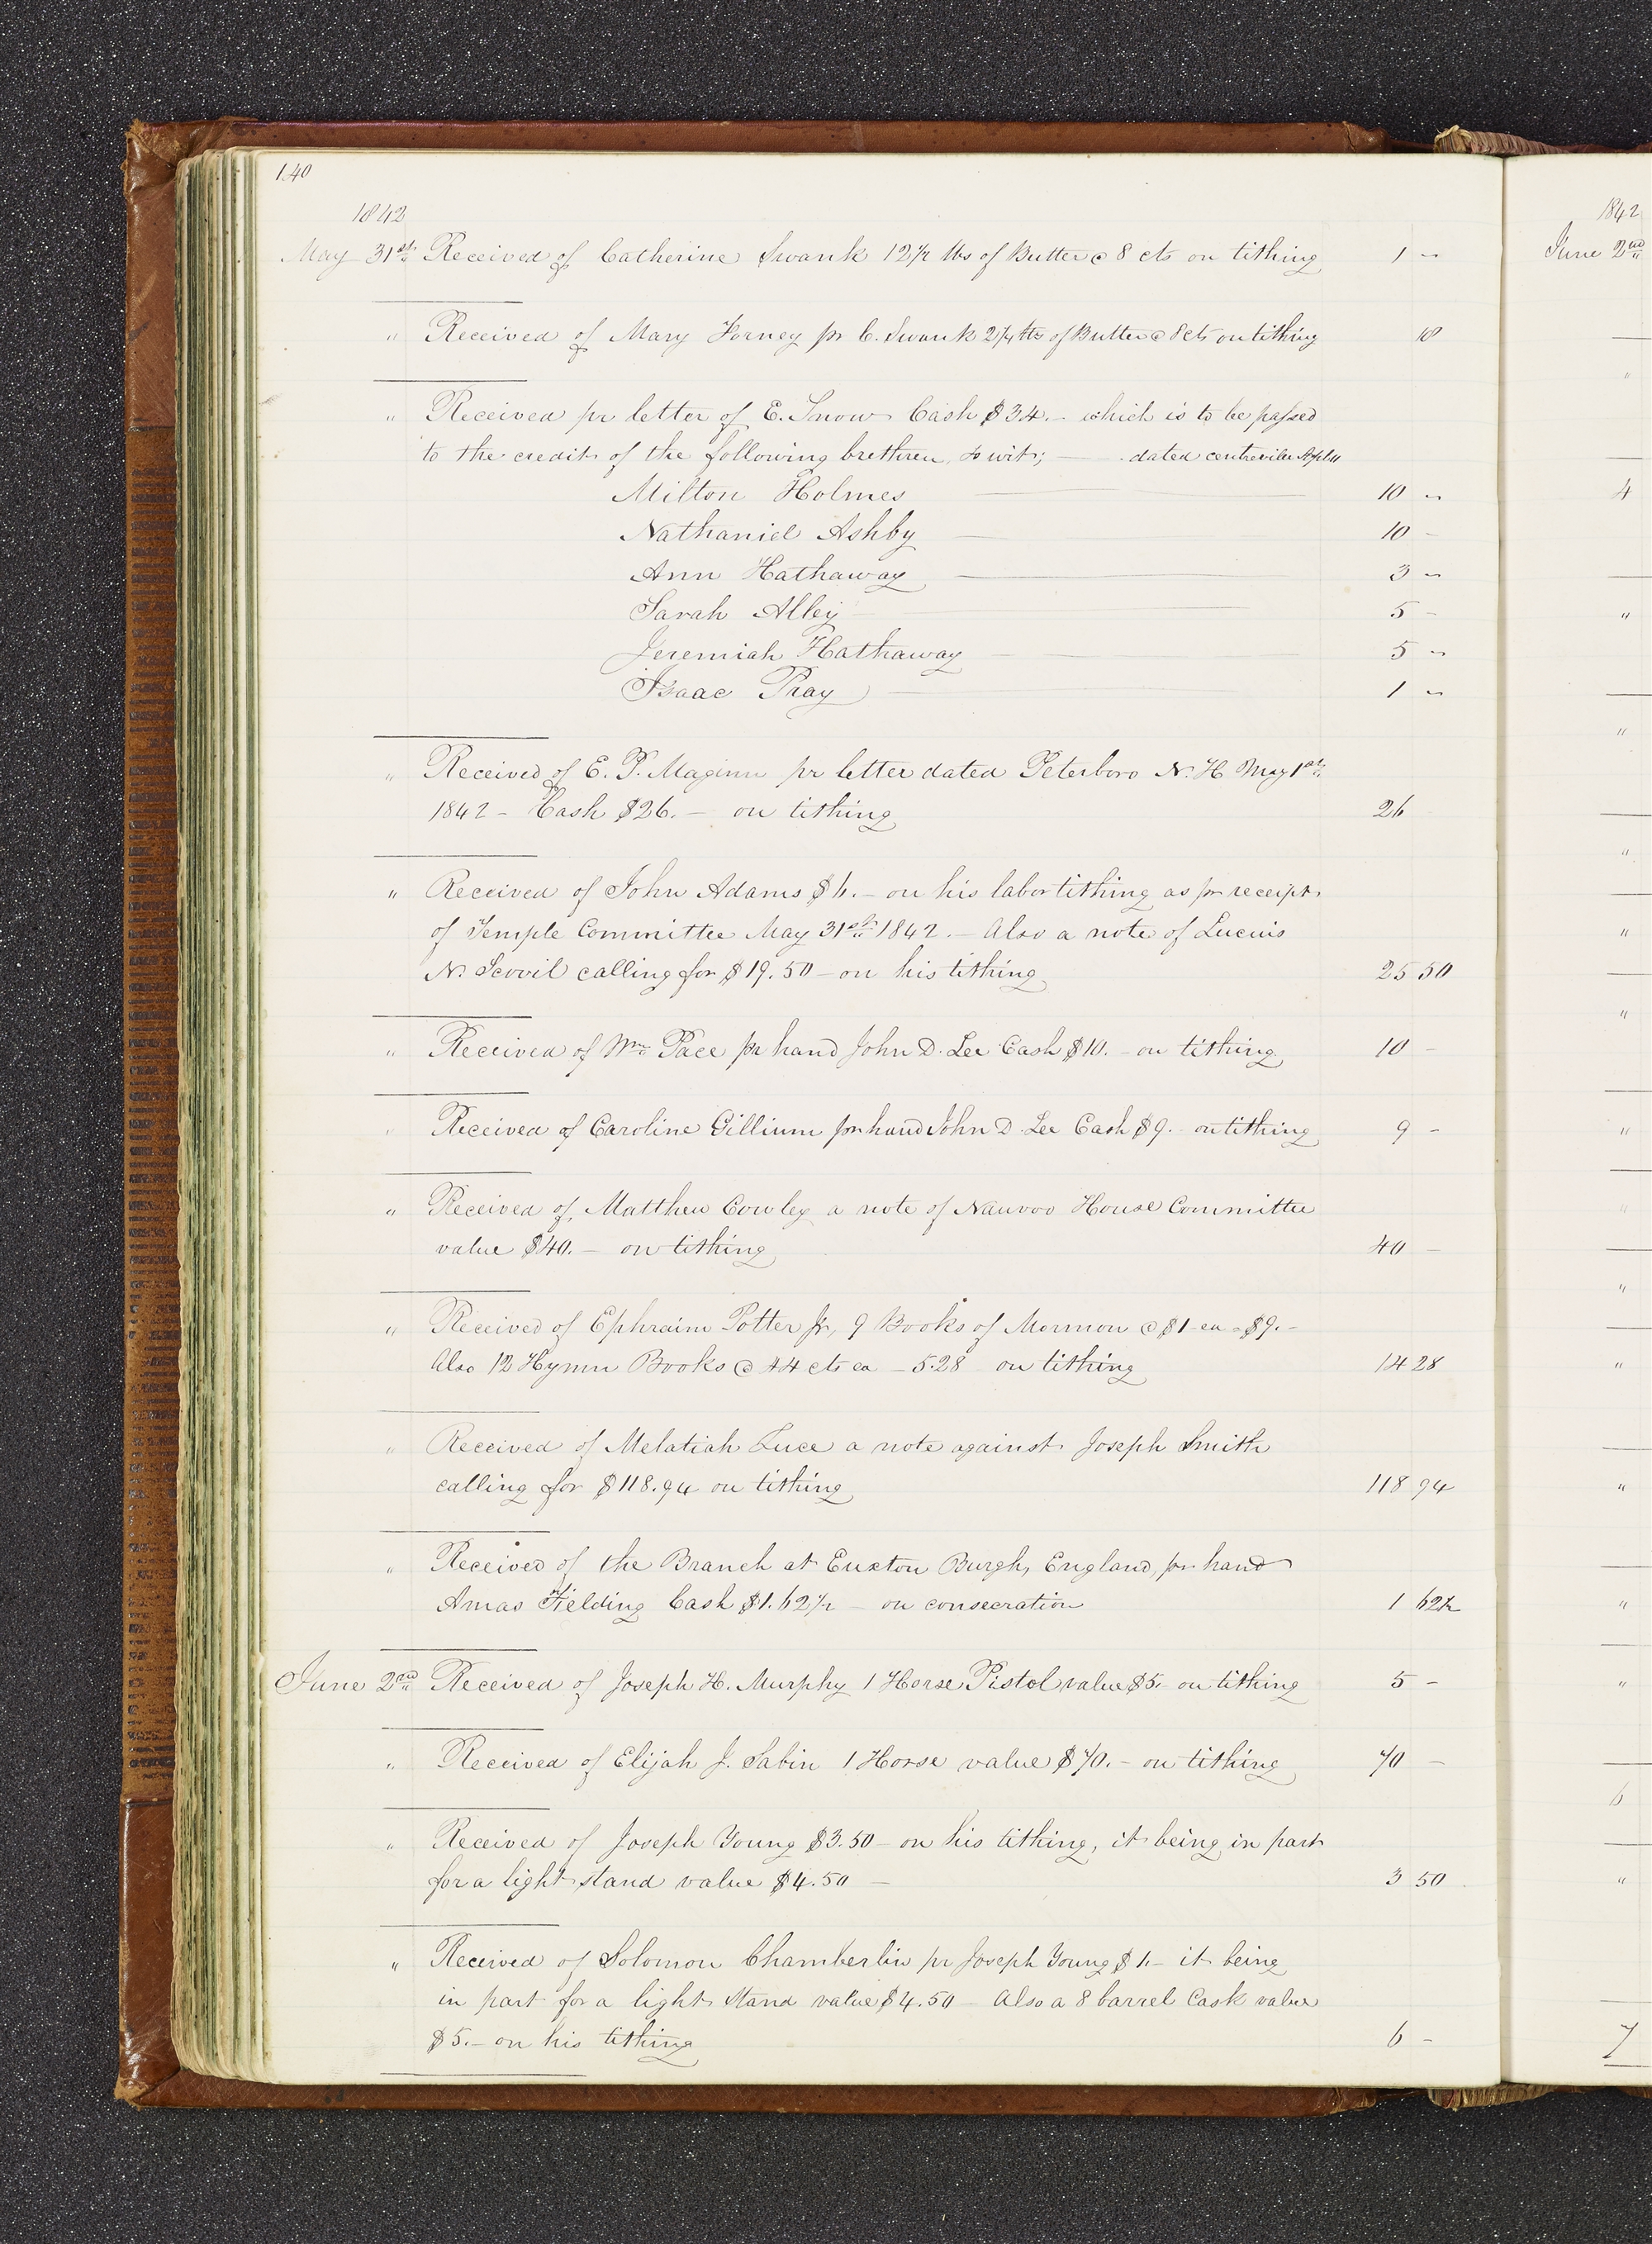 140
1842
May 31st Received of Catherine Swank 12½ lbs of Butter @ 8 cts on tithing 1 "
" Received of Mary Forney pr C. Swank 2¼ lbs of Butter @ 8 cts on tithing 18
" Received pr letter of E. Snow Cash $34.– which is to be passed
to the credit of the following brethren, to wit; – dated
Milton Holmes 10 "
Nathaniel Ashby 10 –
Ann Hathaway 3 "
Sarah Alley 5 –
Jeremiah Hathaway 5 "
Isaac Pray 1 "
" Received of E. P. Maginn pr letter dated Peterboro N. H. May 1st
1842 – Cash $26.– on tithing 26
" Received of John Adams $6.– on his labor tithing as pr receipt
of Temple Committee May 31st 1842.– Also a note of Lucius
N. Scovil calling for $19.50 – on his tithing 25 50
" Received of Wm Pace pr hand John D. Lee Cash $10.– on tithing 10 –
" Received of Caroline Gillium pr hand John D. Lee Cash $9.– on tithing 9 –
" Received of Matthew Cowley a note of Nauvoo House Committee
value $40.– on tithing 40 –
" Received of Ephraim Potter Jr, 9 Books of Mormon @ $1 – ea – $9.–
Also 12 Hymn Books @ 44 cts ea – 5.28 – on tithing 14 28
" Received of Melatiah Luce a note against Joseph Smith
calling for $118.94 on tithing 118 94
" Received of the Branch at Euxton Burgh, England, pr hand
Amas Fielding Cash $1.62½ – on consecration 1 62½
June 2nd Received of Joseph H. Murphy 1 Horse Pistol value $5.– on tithing 5 –
" Received of Elijah J. Sabin 1 Horse value $70.– on tithing 70 –
" Received of Joseph Young $3.50 – on his tithing, it being in part
for a light stand value $4.50 – 3 50
" Received of Solomon Chamberlin pr Joseph Young $1.– it being
in part for a light stand value $4.50 – Also a 8 barrel Cask value
$5.– on his tithing 6 –
1842
June 2nd
"
4
"
"
"
"
"
"
"
"
"
"
"
"
6
"
7